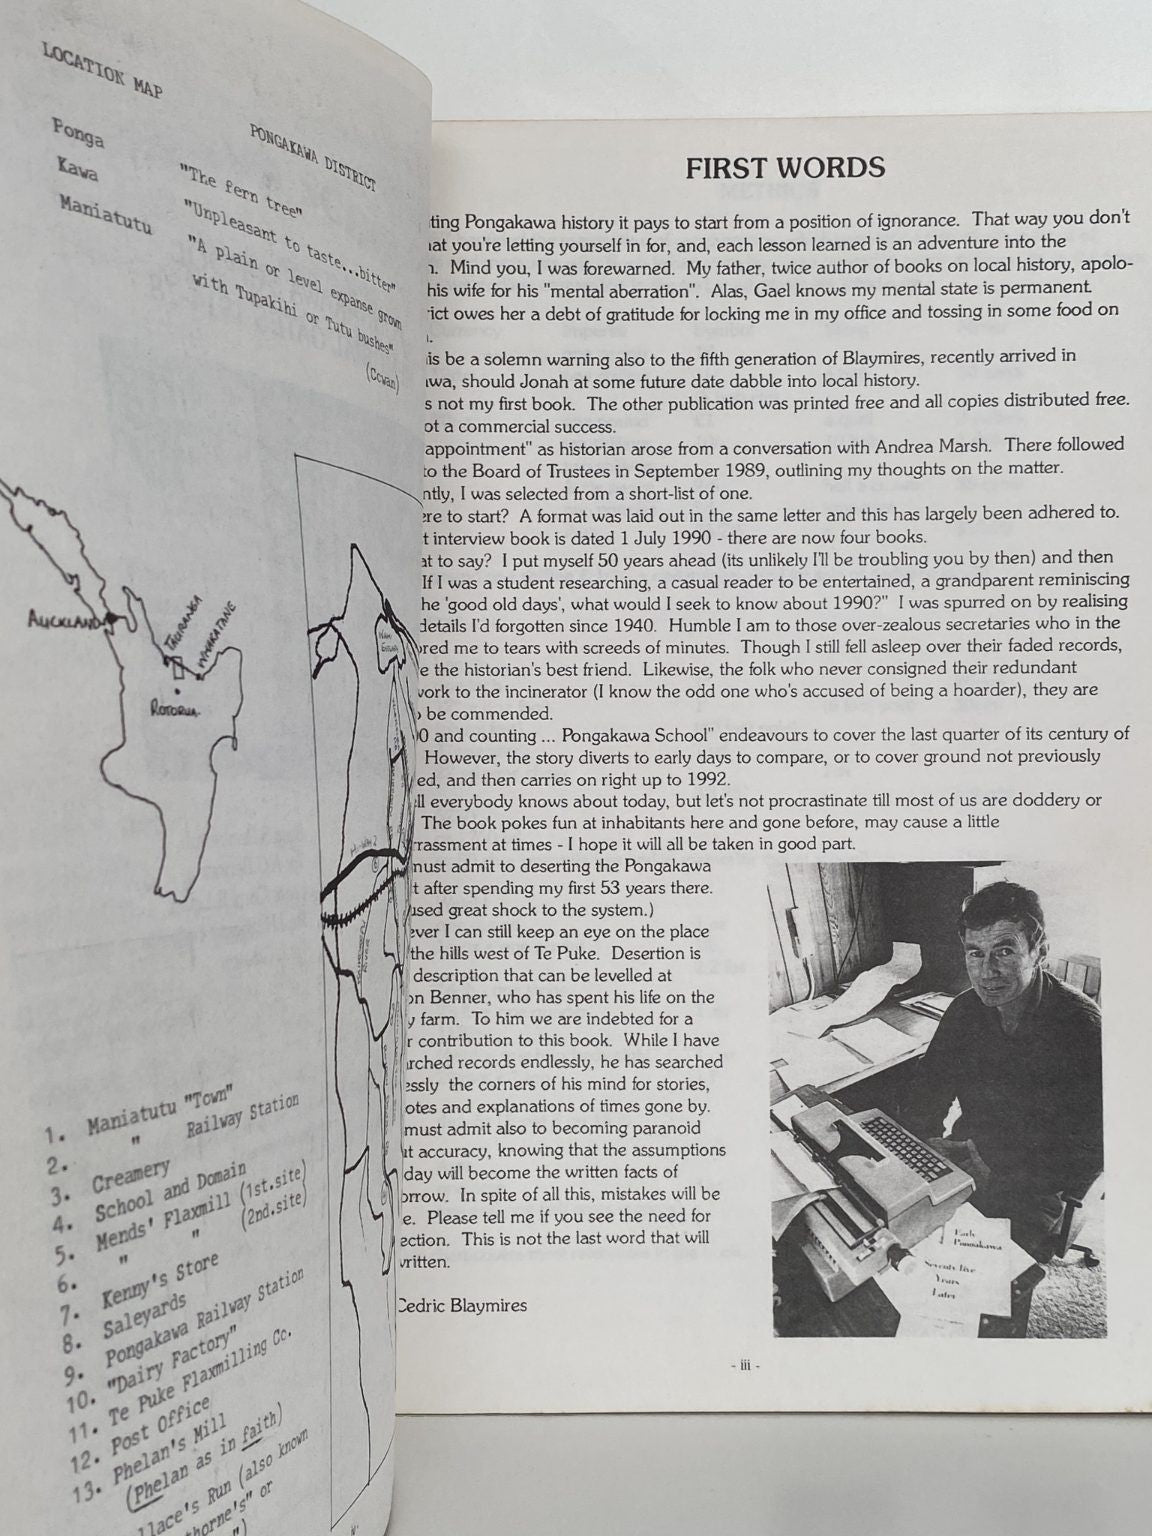 LOCATION MAP
PONGAKAWA DISTRICT
Ponga "The fern tree"
Kawa "Unpleasant to taste...bitter"
Maniatutu "A plain or level expanse grown
with Tupakihi or Tutu bushes"
(Cowan)
AUCKLAND
TAURANGA
WHAKATANE
ROTORUA
1. Maniatutu "Town"
2. " Railway Station
3. Creamery
4. School and Domain
5. Mends' Flaxmill (1st.site)
6. " " (2nd.site)
7. Kenny's Store
8. Saleyards
9. Pongakawa Railway Station
10. "Dairy Factory"
11. Te Puke Flaxmilling Co.
12. Post Office
13. Phelan's Mill
(Phelan as in faith)
llace's Run (also known
thorne's" or
")
FIRST WORDS
ting Pongakawa history it pays to start from a position of ignorance. That way you don't
at you're letting yourself in for, and, each lesson learned is an adventure into the
n. Mind you, I was forewarned. My father, twice author of books on local history, apolo-
his wife for his "mental aberration". Alas, Gael knows my mental state is permanent.
rict owes her a debt of gratitude for locking me in my office and tossing in some food on
n.
is be a solemn warning also to the fifth generation of Blaymires, recently arrived in
awa, should Jonah at some future date dabble into local history.
s not my first book. The other publication was printed free and all copies distributed free.
ot a commercial success.
appointment" as historian arose from a conversation with Andrea Marsh. There followed
to the Board of Trustees in September 1989, outlining my thoughts on the matter.
ntly, I was selected from a short-list of one.
ere to start? A format was laid out in the same letter and this has largely been adhered to.
t interview book is dated 1 July 1990 - there are now four books.
at to say? I put myself 50 years ahead (its unlikely I'll be troubling you by then) and then
If I was a student researching, a casual reader to be entertained, a grandparent reminiscing
he 'good old days', what would I seek to know about 1990?" I was spurred on by realising
details I'd forgotten since 1940. Humble I am to those over-zealous secretaries who in the
ored me to tears with screeds of minutes. Though I still fell asleep over their faded records,
e the historian's best friend. Likewise, the folk who never consigned their redundant
work to the incinerator (I know the odd one who's accused of being a hoarder), they are
o be commended.
00 and counting ... Pongakawa School" endeavours to cover the last quarter of its century of
However, the story diverts to early days to compare, or to cover ground not previously
ed, and then carries on right up to 1992.
ll everybody knows about today, but let's not procrastinate till most of us are doddery or
The book pokes fun at inhabitants here and gone before, may cause a little
rrassment at times - I hope it will all be taken in good part.
must admit to deserting the Pongakawa
t after spending my first 53 years there.
used great shock to the system.)
ever I can still keep an eye on the place
the hills west of Te Puke. Desertion is
description that can be levelled at
on Benner, who has spent his life on the
y farm. To him we are indebted for a
r contribution to this book. While I have
arched records endlessly, he has searched
essly the corners of his mind for stories,
otes and explanations of times gone by.
must admit also to becoming paranoid
ut accuracy, knowing that the assumptions
day will become the written facts of
orrow. In spite of all this, mistakes will be
e. Please tell me if you see the need for
ection. This is not the last word that will
written.
Cedric Blaymires
Early
Pongakawa
Seventy five
Years
Later
- iii -